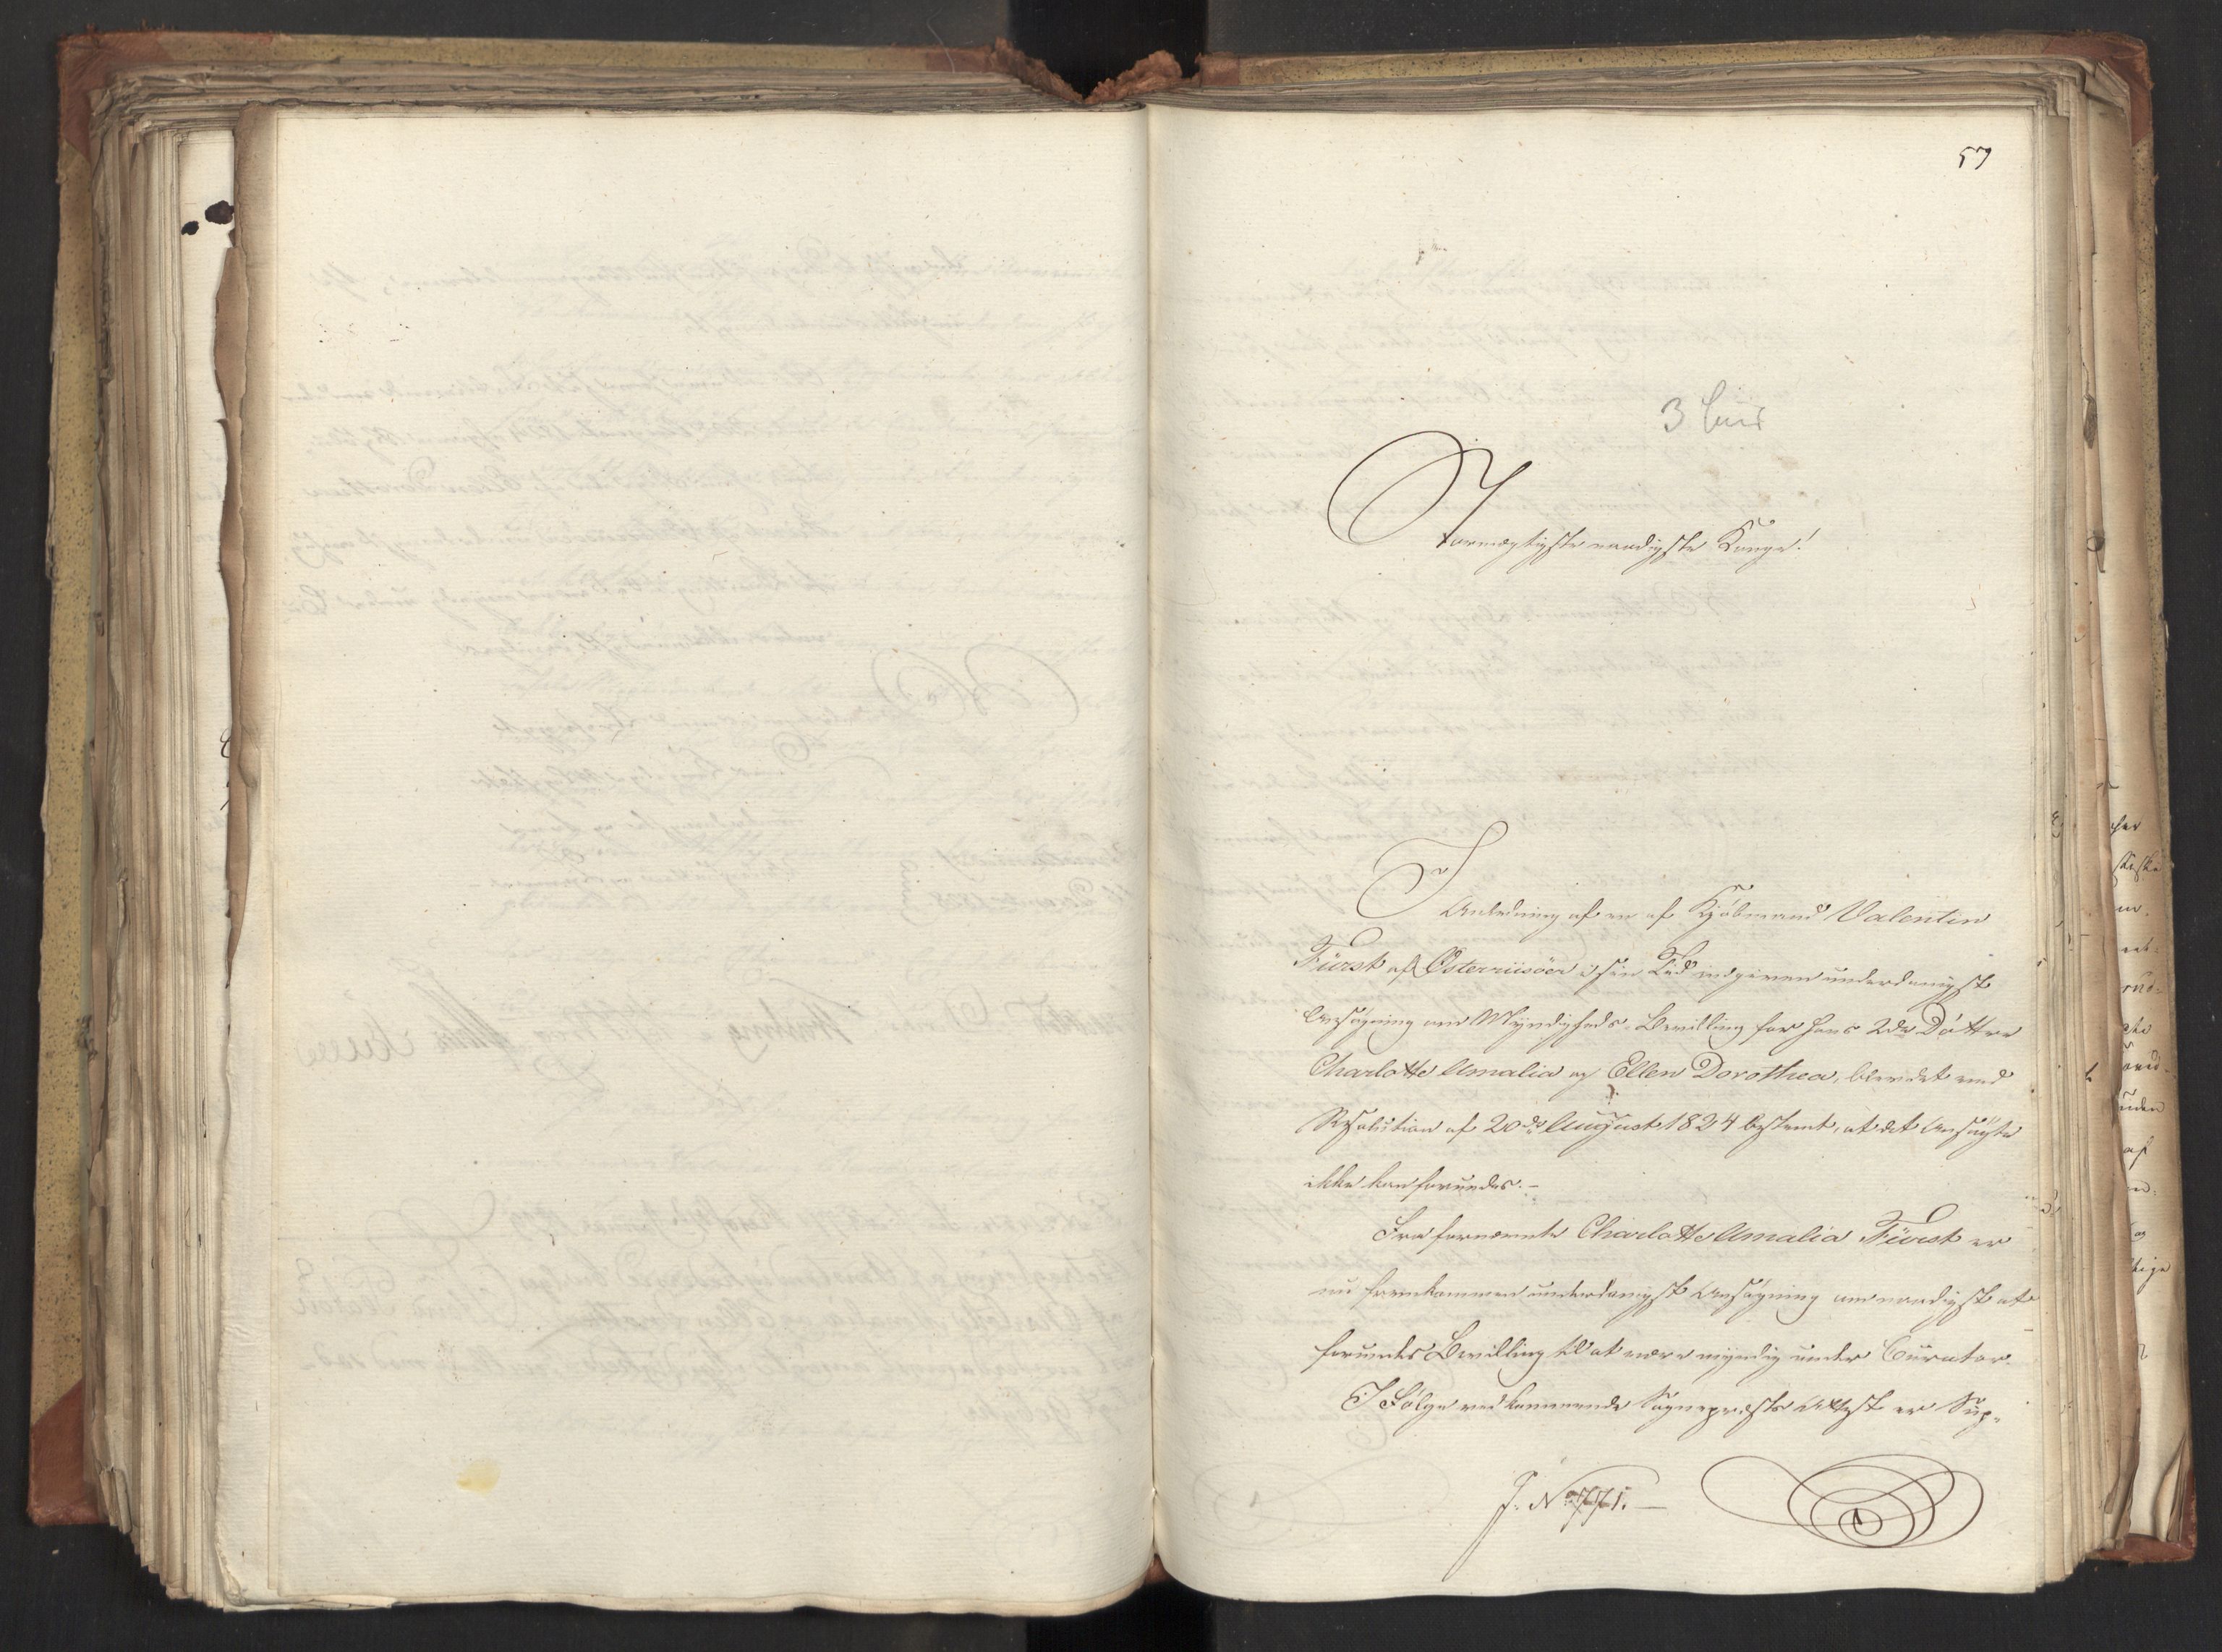 57
3 bis
Stormægtigste naadigste Konge!
I
Anledning af en af Kjøbmand Valentin
Fürst af Österriisöer i sin Tid indgiven underdanigst
Ansøgning om Myndigheds-Bevilling for hans 2de Döttre
Charlotte Amalia og Ellen Dorothea, blev det ved
Resolution af 20de August 1824 bestemt, at det Ansøgte
ikke kan forundes.-
Fra fornævnte Charlotte Amalia Fürst er
nu fremkommen underdanigst Ansøgning om naadigst at
forundes Bevilling til at være myndig under Curator.
I Følge vedkommende Sognepræsts Attest er Sup-
J. No 771.-